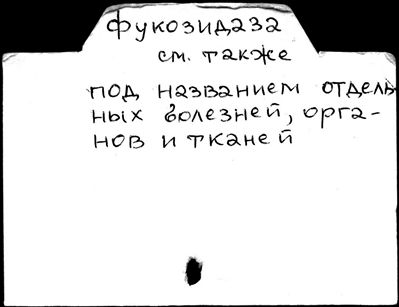 фукозидаза
см. также
под названием отдель
ных болезней, орга-
нов и тканей